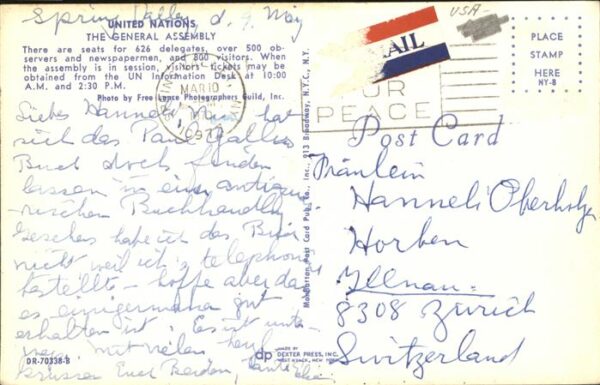 Spring Valley d. 9. May
UNITED NATIONS
THE GENERAL ASSEMBLY
There are seats for 626 delegates, over 500 ob-
servers and newspapermen, and 800 visitors. When
the assembly is in session, visitors' tickets may be
obtained from the UN Information Desk at 10:00
A.M. and 2:30 P.M.
Photo by Free Lance Photographers Guild, Inc.
Liebes Hanneli, Nun hat
sich das Paul Gallico
Buch doch finden
lassen in einer antiqua-
rischen Buchhandlg
Gesehen habe ich das Buch
nicht weil ich's telephon.
bestellt - hoffe aber dass
es einigermassen gut
erhalten ist. Es ist unter-
wegs. Mit vielen herzl.
Grüssen Euch Beiden,
DR-70338-B
Manhattan Post Card Pub. Co., Inc., 913 Broadway, N.Y.C., N.Y.
MADE BY
dp DEXTER PRESS, INC.
WEST NYACK, NEW YORK
USA
AIL
MAR 10
PEACE
PLACE
STAMP
HERE
NY-8
Post Card
Fräulein
Hanneli Oberholzer
Horben
Illnau
8308 Zürich
Switzerland